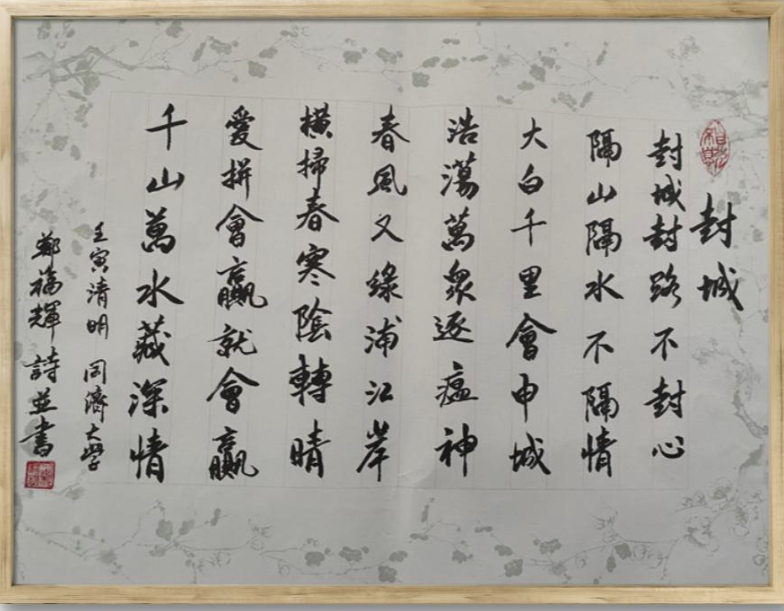 封城
封城封路不封心
隔山隔水不隔情
大白千里會申城
浩蕩萬眾逐瘟神
春風又綠浦江岸
橫掃春寒陰轉晴
愛拼會贏就會贏
千山萬水藏深情
壬寅清明 同濟大學
鄭福輝 詩並書